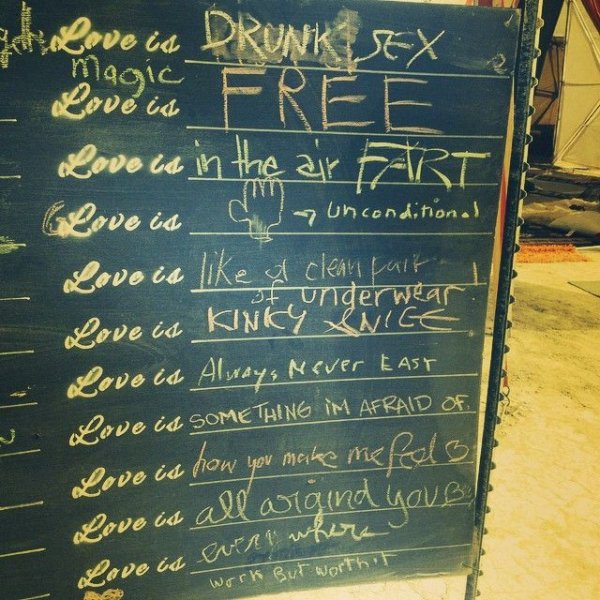 Love is DRUNK SEX
Magic
Love is FREE
Love is in the air FART
Love is → Unconditional
Love is like a clean pair
of underwear
Love is KINKY & NICE
Love is Always, Never EASY
Love is SOMETHING iM AFRAID OF.
Love is how you make me feel
Love is all around you
Love is everywhere
work But worth it